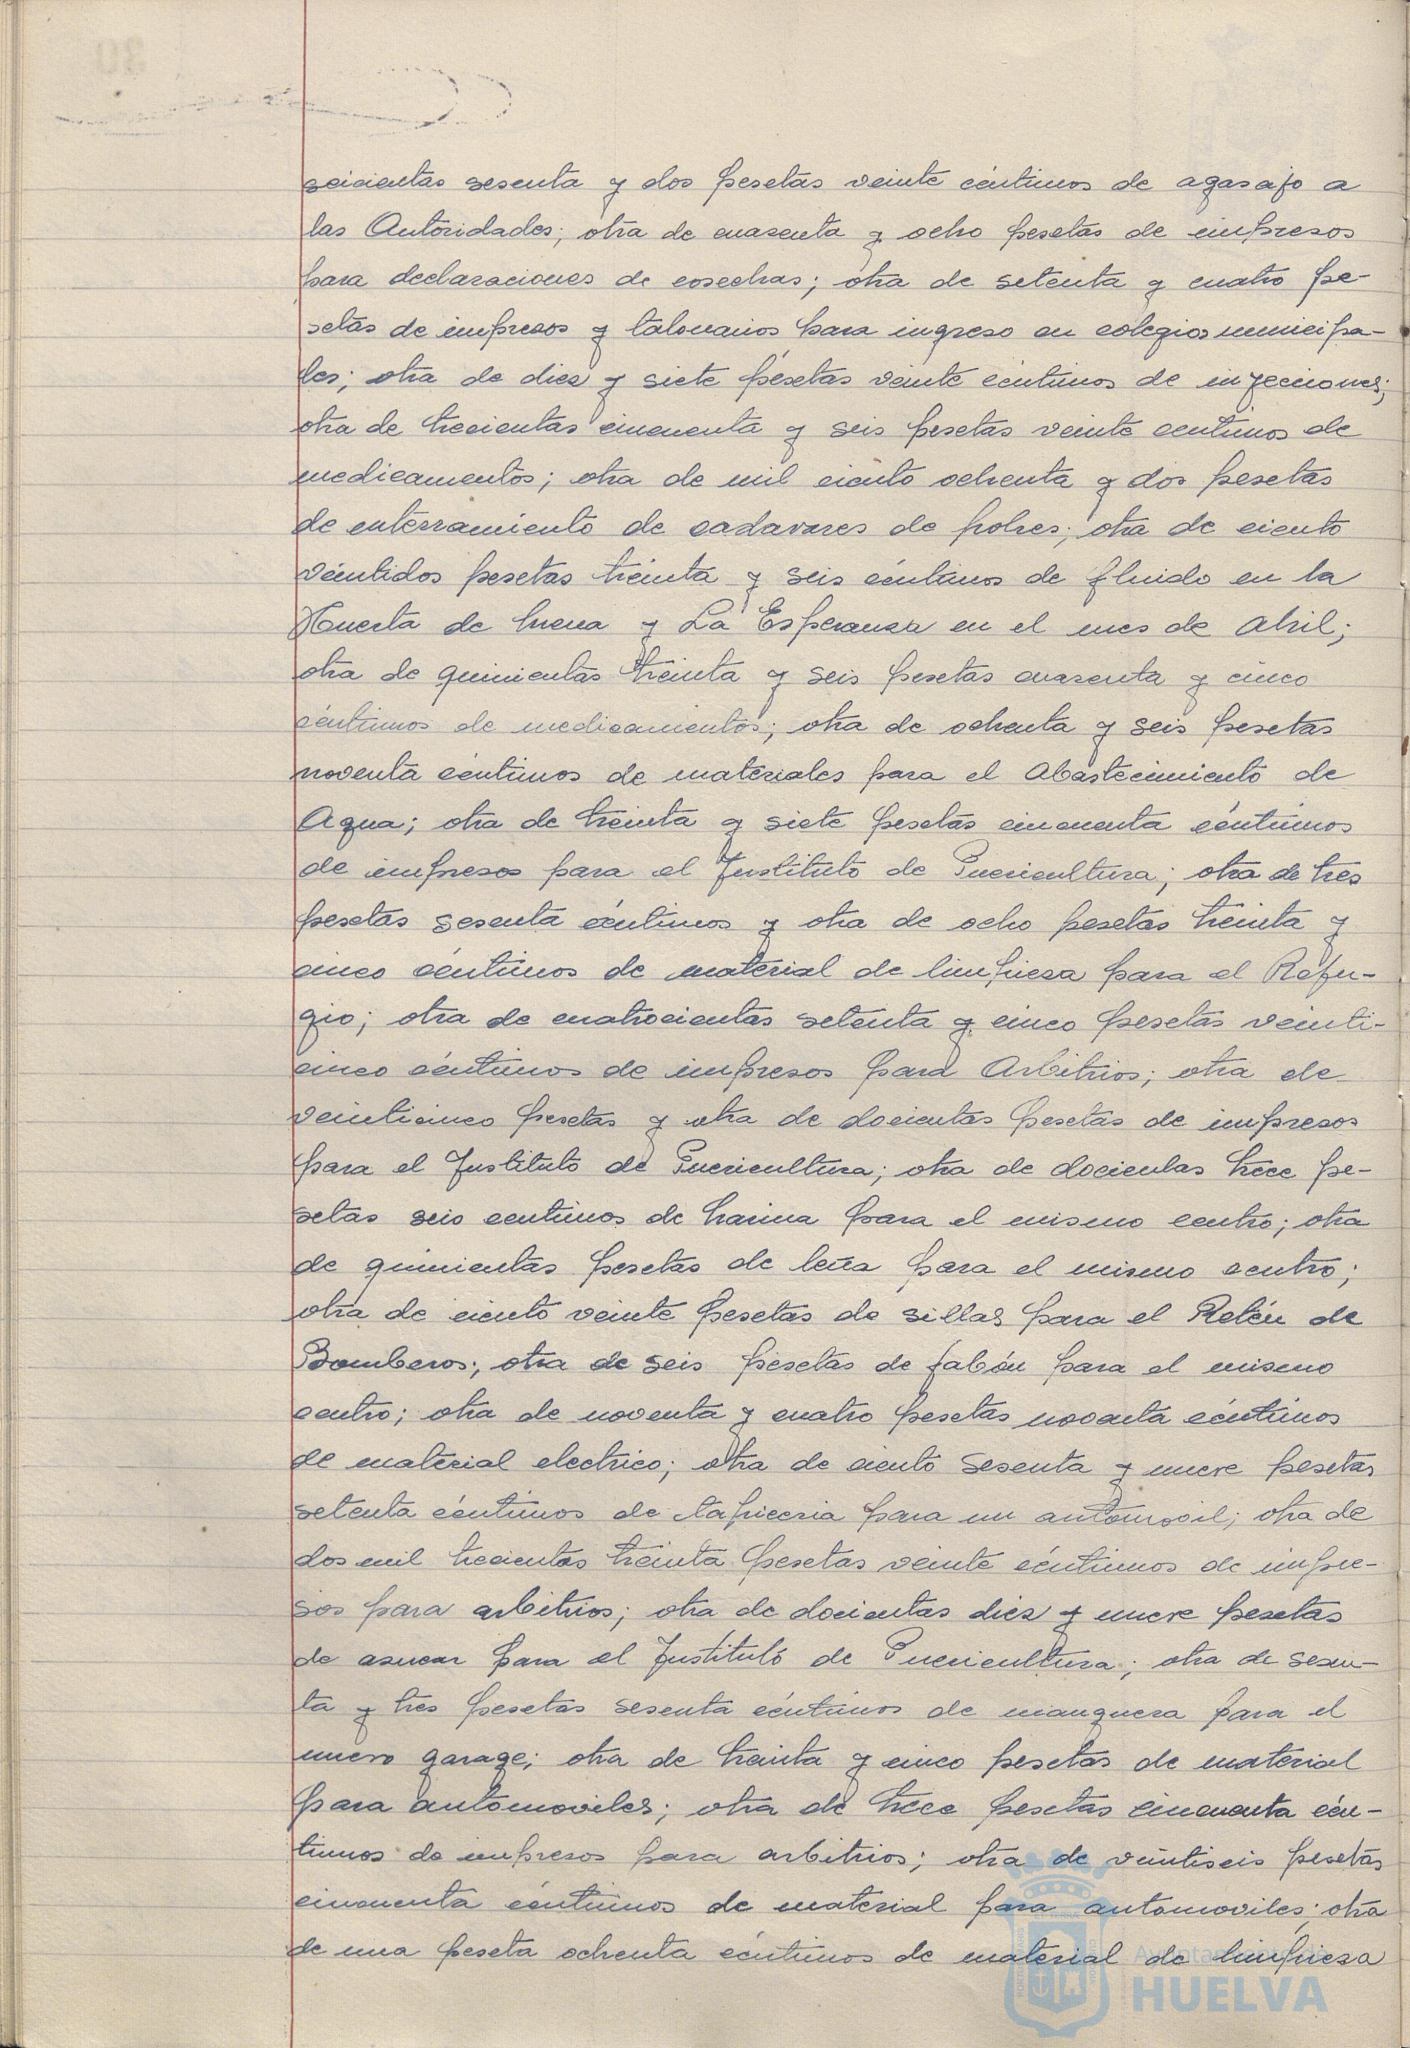 seicientas sesenta y dos pesetas veinte céntimos de agasajo a
las Autoridades; otra de cuarenta y ocho pesetas de impresos
para declaraciones de cosechas; otra de setenta y cuatro pe-
setas de impresos y talonarios para ingreso en colegios municipa-
les; otra de diez y siete pesetas veinte céntimos de inyecciones;
otra de trecientas cincuenta y seis pesetas veinte centimos de
medicamentos; otra de mil ciento ochenta y dos pesetas
de enterramiento de cadavares de pobres; otra de ciento
veintidos pesetas treinta y seis céntimos de fluido en la
Huerta de Mena y La Esperanza en el mes de Abril;
otra de quinientas treinta y seis pesetas cuarenta y cinco
céntimos de medicamientos; otra de ochenta y seis pesetas
noventa céntimos de materiales para el Abastecimiento de
Agua; otra de treinta y siete pesetas cincuenta céntimos
de impresos para el Instituto de Puericultura; otra de tres
pesetas sesenta céntimos y otra de ocho pesetas treinta y
cinco céntimos de material de limpieza para el Refu-
gio; otra de cuatrocientas setenta y cinco pesetas veinti-
cinco céntimos de impresos para Arbitrios; otra de
veinticinco pesetas y otra de docientas pesetas de impresos
para el Instituto de Puericultura; otra de docientas trece pe-
setas seis centimos de harina para el mismo centro; otra
de quinientas pesetas de leña para el mismo centro;
otra de ciento veinte pesetas de sillas para el Retén de
Bomberos; otra de seis pesetas de jabón para el mismo
centro; otra de noventa y cuatro pesetas noventa céntimos
de material electrico; otra de ciento sesenta y nueve pesetas
setenta céntimos de tapiceria para un automovil; otra de
dos mil trecientas treinta pesetas veinte céntimos de impre-
sos para arbitrios; otra de docientas diez y nueve pesetas
de azucar para el Instituto de Puericultura; otra de sesen-
ta y tres pesetas sesenta céntimos de manguera para el
nuevo garage; otra de treinta y cinco pesetas de material
para automoviles; otra de trece pesetas cincuenta cén-
timos de impresos para arbitrios; otra de veintiseis pesetas
cincuenta céntimos de material para automoviles; otra
de una peseta ochenta céntimos de material de limpieza
Ayuntamiento de
HUELVA